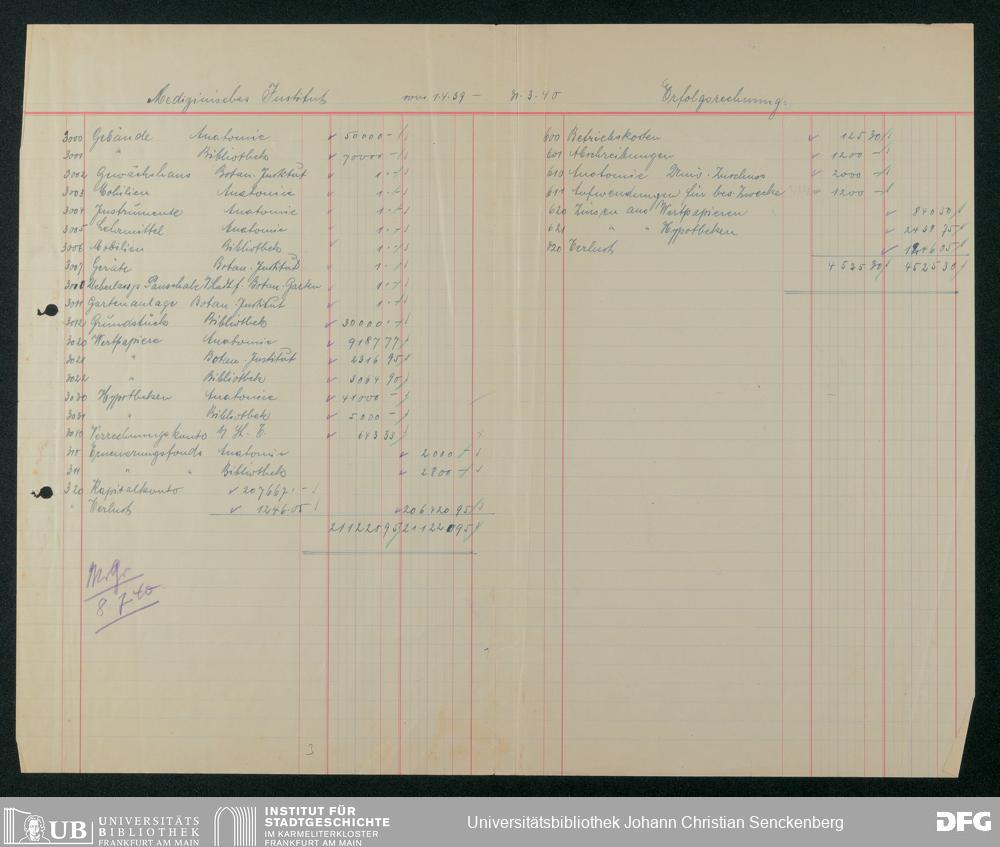 Medizinisches Institut vom 1.4.39 – 31.3.40 Erfolgsrechnung.
3000 Gebäude Anatomie 50000 –
3001 " Bibliothek 70000 –
3002 Gewächshaus Botan. Institut 1. –
3003 Mobilien Anatomie 1. –
3004 Instrumente Anatomie 1. –
3005 Lehrmittel Anatomie 1. –
3006 Mobilien Bibliothek 1. –
3007 Geräte Botan. Institut 1. –
3008 Pauschale Botan. Garten 1. –
3011 Gartenanlage Botan. Institut 1. –
3012 Grundstück Bibliothek 30000. –
3020 Wertpapiere Anatomie 9187 77
3021 " Botan. Institut 2316 95
3022 " Bibliothek 3064 90
3030 Hypotheken Anatomie 41000 –
3031 " Bibliothek 5000 –
3040 Verrechnungskonto 643 33
310 Erneuerungsfonds Anatomie 2000 –
311 " " Bibliothek 2800 –
320 Kapitalkonto 207667. –
" Verlust 1246.05 206420 95
211220 95 211220 95
600 Betriebskosten 125 30
601 Abschreibungen 1200 –
610 Anatomie Zuschuss 2000 –
611 Aufwendungen für bes. Zwecke 1200 –
620 Zinsen aus Wertpapieren 840 50
621 " " Hypotheken 2438 75
820 Verlust 1246 05
4525 30 4525 30
8 7.40
3
UB UNIVERSITÄTS
BIBLIOTHEK
FRANKFURT AM MAIN
INSTITUT FÜR
STADTGESCHICHTE
IM KARMELITERKLOSTER
FRANKFURT AM MAIN
Universitätsbibliothek Johann Christian Senckenberg
DFG